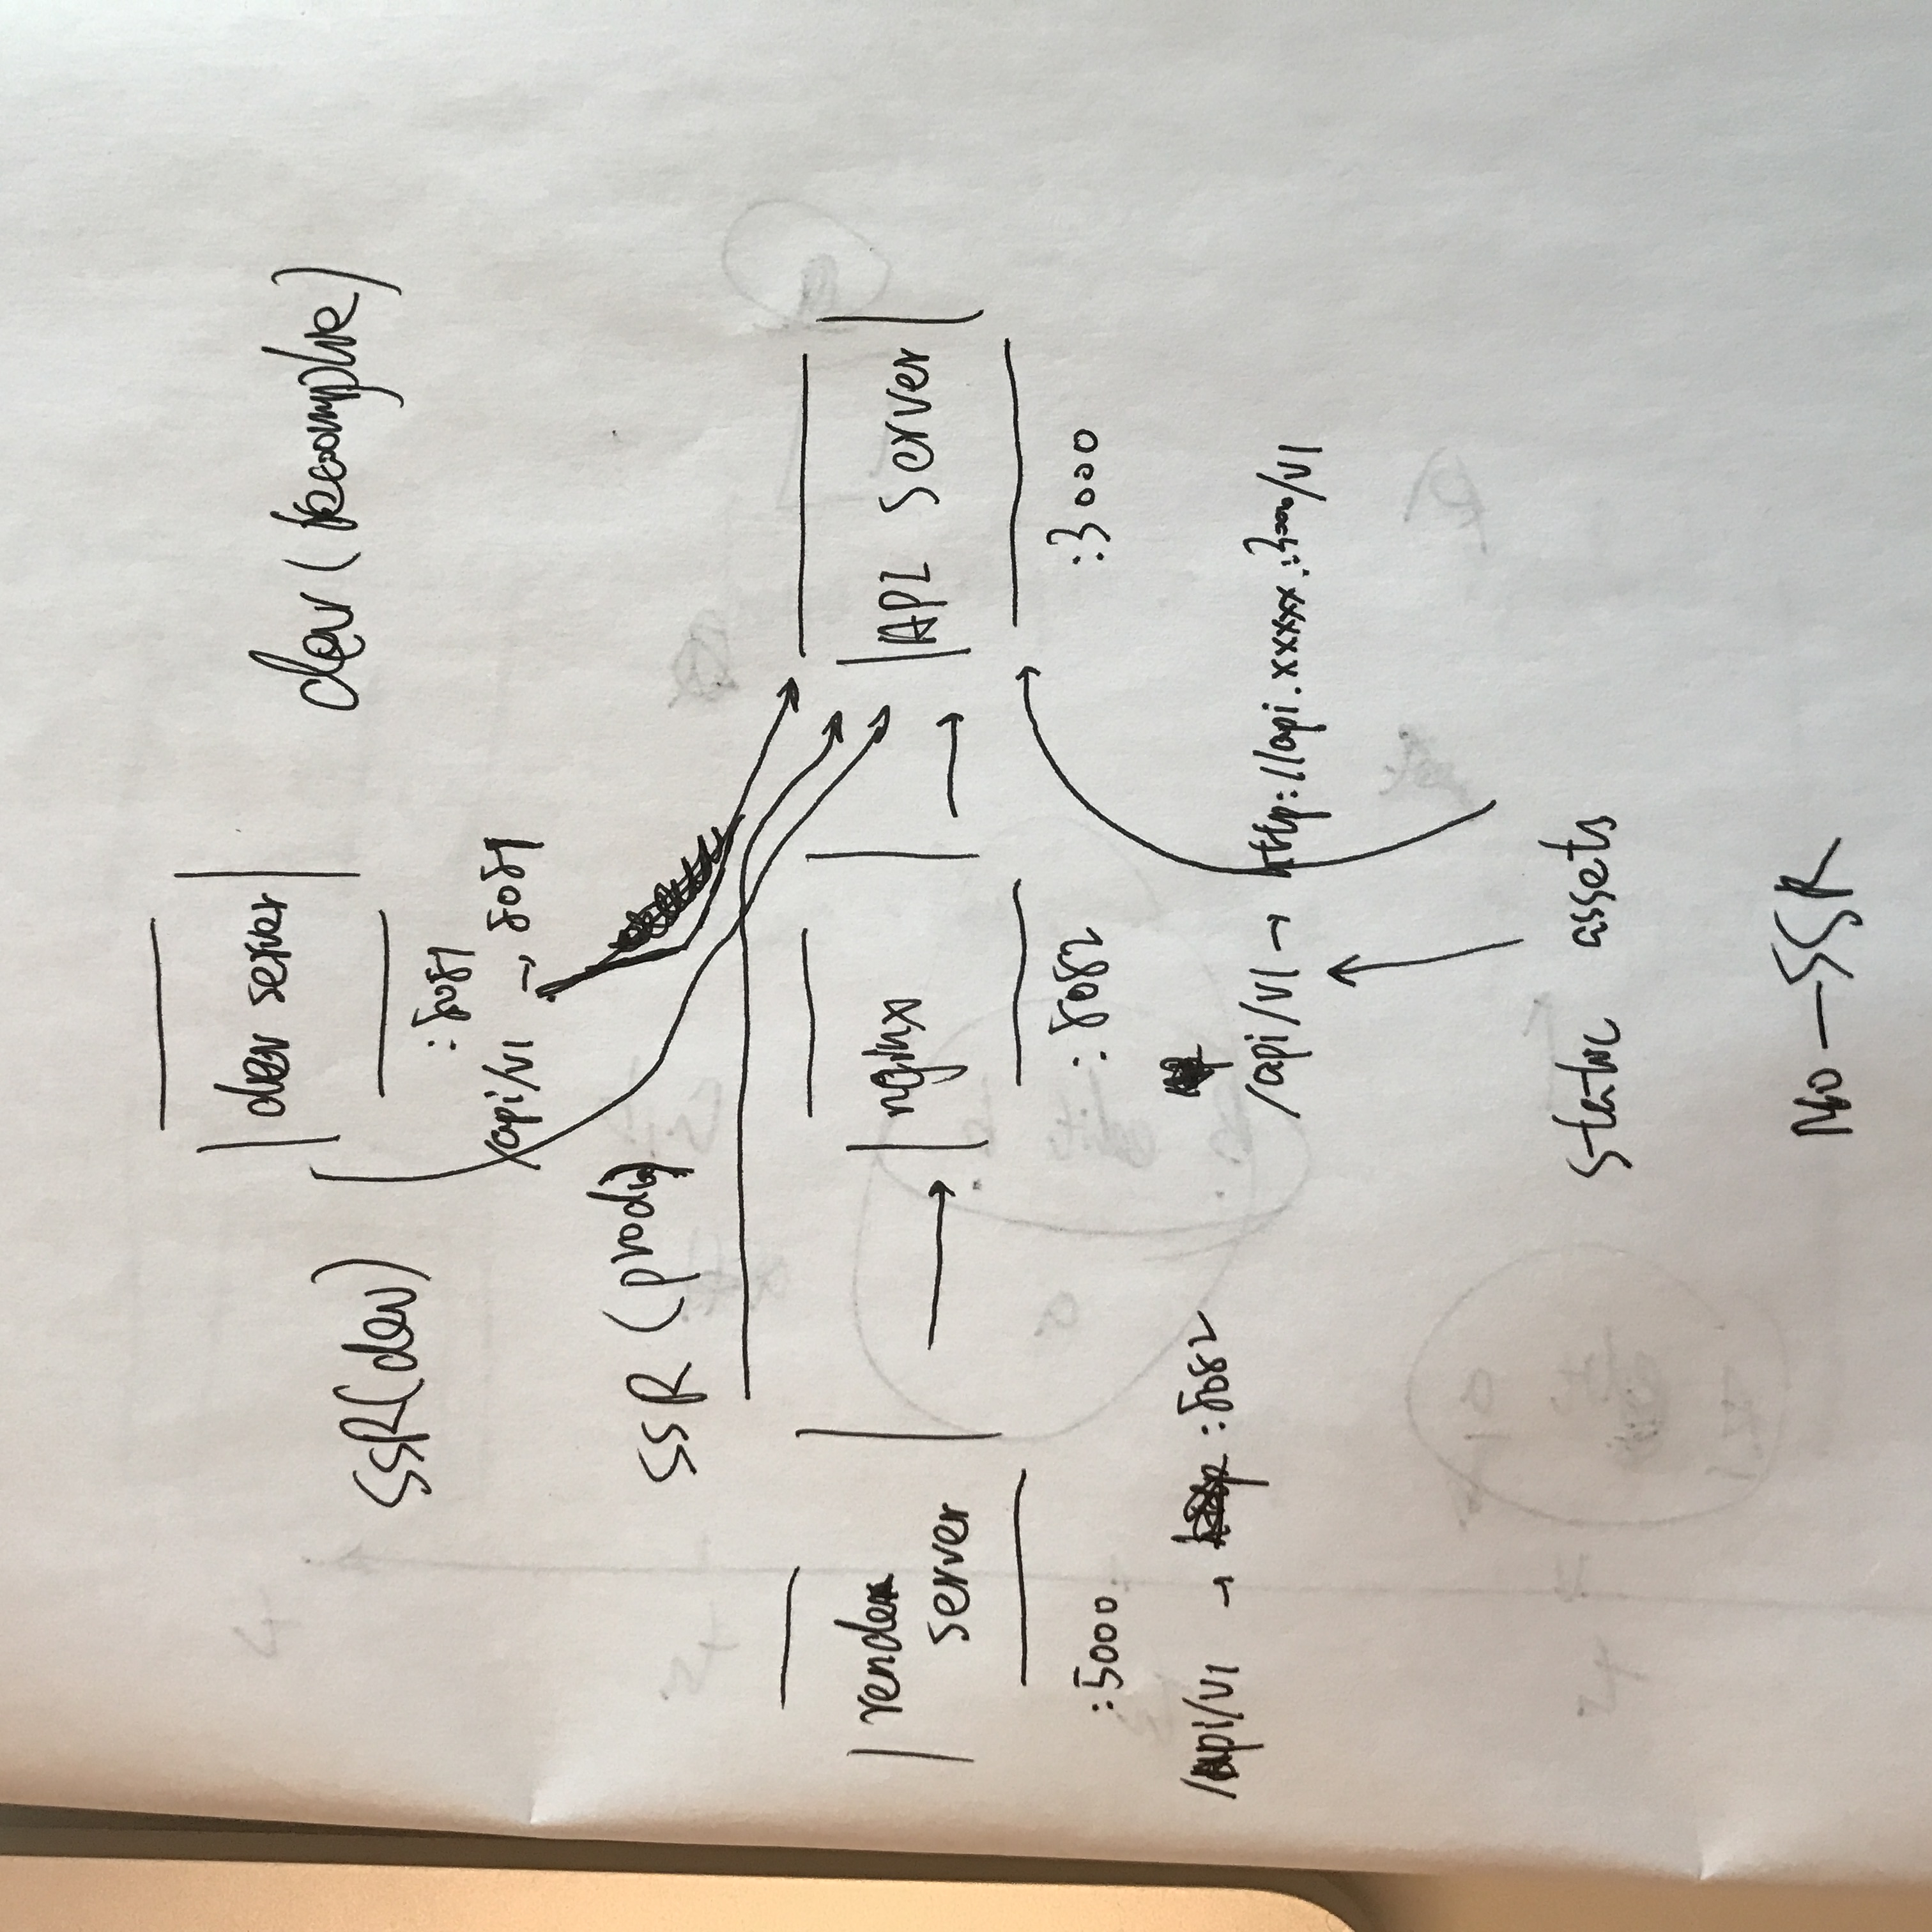 dev (
dev server
:8081
/api/v1 → 8081
SSR(dev)
SSR (prod)
render
server
:5000
/api/v1 → :8082
nginx
:8082
/api/v1 → http://api.xxxxx:3000/v1
API Server
:3000
static assets
No-SSR